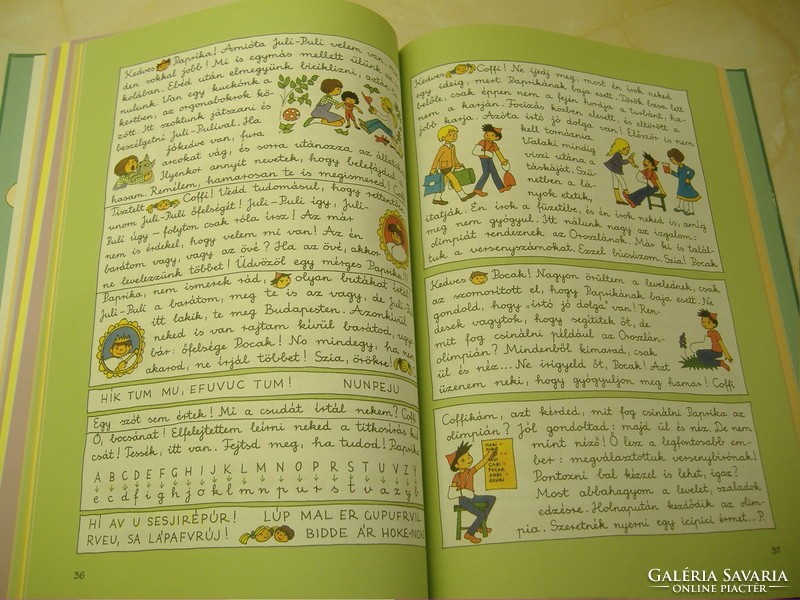 Kedves Paprika! Amióta Juli-Puli velem van,
den sokkal jobb! Mi is egymás mellett ülünk
kolában. Ebéd után elmegyünk biciklizni, aztán
nulunk. Van egy kuckónk a
kertben, az orgonabokrok kö-
zött. Itt szoktunk játszani és
beszélgetni Juli-Pulival. Ha
jókedve van, fura
arcokat vág, és sorra utánozza az állatok
Ilyenkor annyit nevetek, hogy belefájdul
hasam. Remélem, hamarosan te is megismered! Coffi
Tisztelt Coffi! Vedd tudomásul, hogy rettentően
unom Juli-Puli őfelségét! Juli-Puli így, Juli-
Puli úgy – folyton csak róla írsz! Az már
nem is érdekel, hogy velem mi van! Az én
barátom vagy, vagy az övé? Ha az övé, akkor
ne levelezzünk többet! Üdvözöl egy mérges Paprika!!
Paprika, nem ismerek rád, olyan butákat írtál
Juli-Puli a barátom, meg te is az vagy, de Juli-
itt lakik, te meg Budapesten. Azonkívül
neked is van rajtam kívül barátod, ugye
bár: őfelsége Pocak! No mindegy, ha nem
akarod, ne írjál többet! Szia, örökre!
HIK TUM MU, EFUVUC TUM! NUNPEJU
Egy szót sem értek! Mi a csudát írtál nekem? Coffi
Ó, bocsánat! Elfelejtettem leírni neked a titkosírás kul
csát! Tessék, itt van. Fejtsd meg, ha tudod! Paprika
A B C D E F G H J K L M N O P R S T U V Z Y
e c d f g h j k l m n p u r s t v a z y b
HÍ AV U SESJIRÉPÚR! LÚP MAL ER GUPUFRVIL
RVEU, SA LÁPAFVRÚJ! BIDDE ÁR HOKE-NOKE
36
Kedves Coffi! Ne ijedj meg, most én írok neked
egy ideig, mert Paprikának baja esett. Török basa lett
belőle, csak éppen nem a fején hordja a turbánt, ha-
nem a karján. Focizás közben elesett, és eltörött a
jobb karja. Azóta istó jó dolga van! Először is nem
kell tornáznia.
Valaki mindig
viszi utána a
táskáját. Szü-
netben a lá-
nyok etetik,
itatják. Én írok a füzetébe, és én írok neked is, amíg
meg nem gyógyul. Itt nálunk nagy az izgalom:
olimpiát rendeznek az Oroszlánok. Már ki is talál-
tuk a versenyszámokat. Ezzel búcsúzom. Szia! Pocak
Kedves Pocak! Nagyon örültem a levelednek, csak
az szomorított el, hogy Paprikának baja esett. Ne
gondold, hogy „istó jó dolga" van! Ren-
desek vagytok, hogy segítitek őt, de
mit fog csinálni például az Oroszlán-
olimpián? Mindenből kimarad, csak
ül és néz... Ne irigyeld őt, Pocak! Azt
üzenem neki, hogy gyógyuljon meg hamar! Coffi
Coffikám, azt kérded, mit fog csinálni Paprika az
olimpián? Jól gondoltad: majd ül és néz. De nem
mint néző! Ő lesz a legfontosabb em-
ber: megválasztottuk versenybírónak!
Pontozni bal kézzel is lehet, igaz?
Most abbahagyom a levelet, szaladok
edzésre. Holnapután kezdődik az olim-
pia. Szeretnék nyerni egy icipici érmet... P.
37
GALÉRIA SAVARIA
ONLINE PIACTÉR